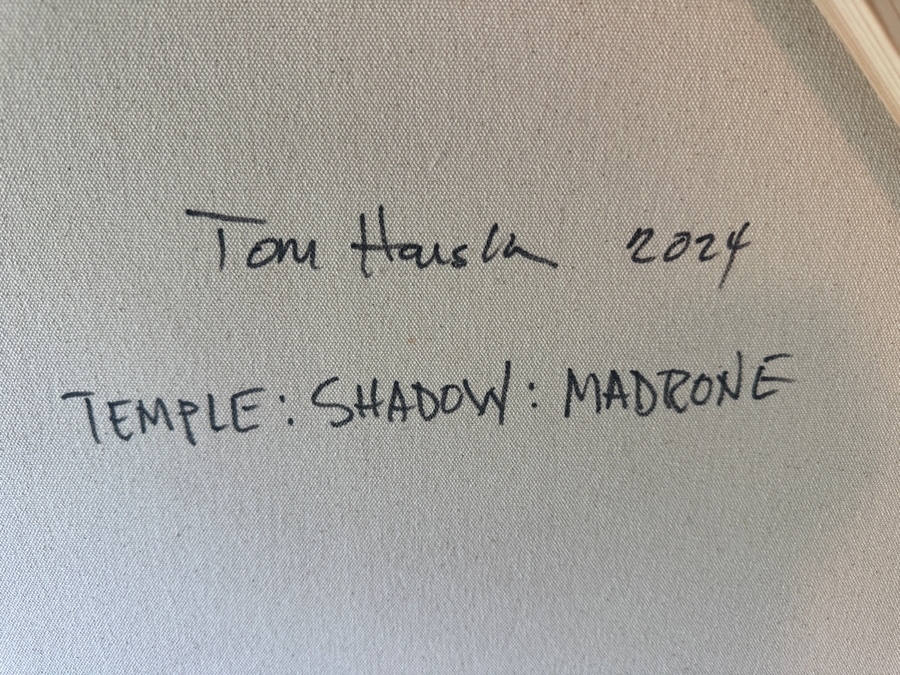 Tom Hausken 2024
TEMPLE: SHADOW: MADRONE